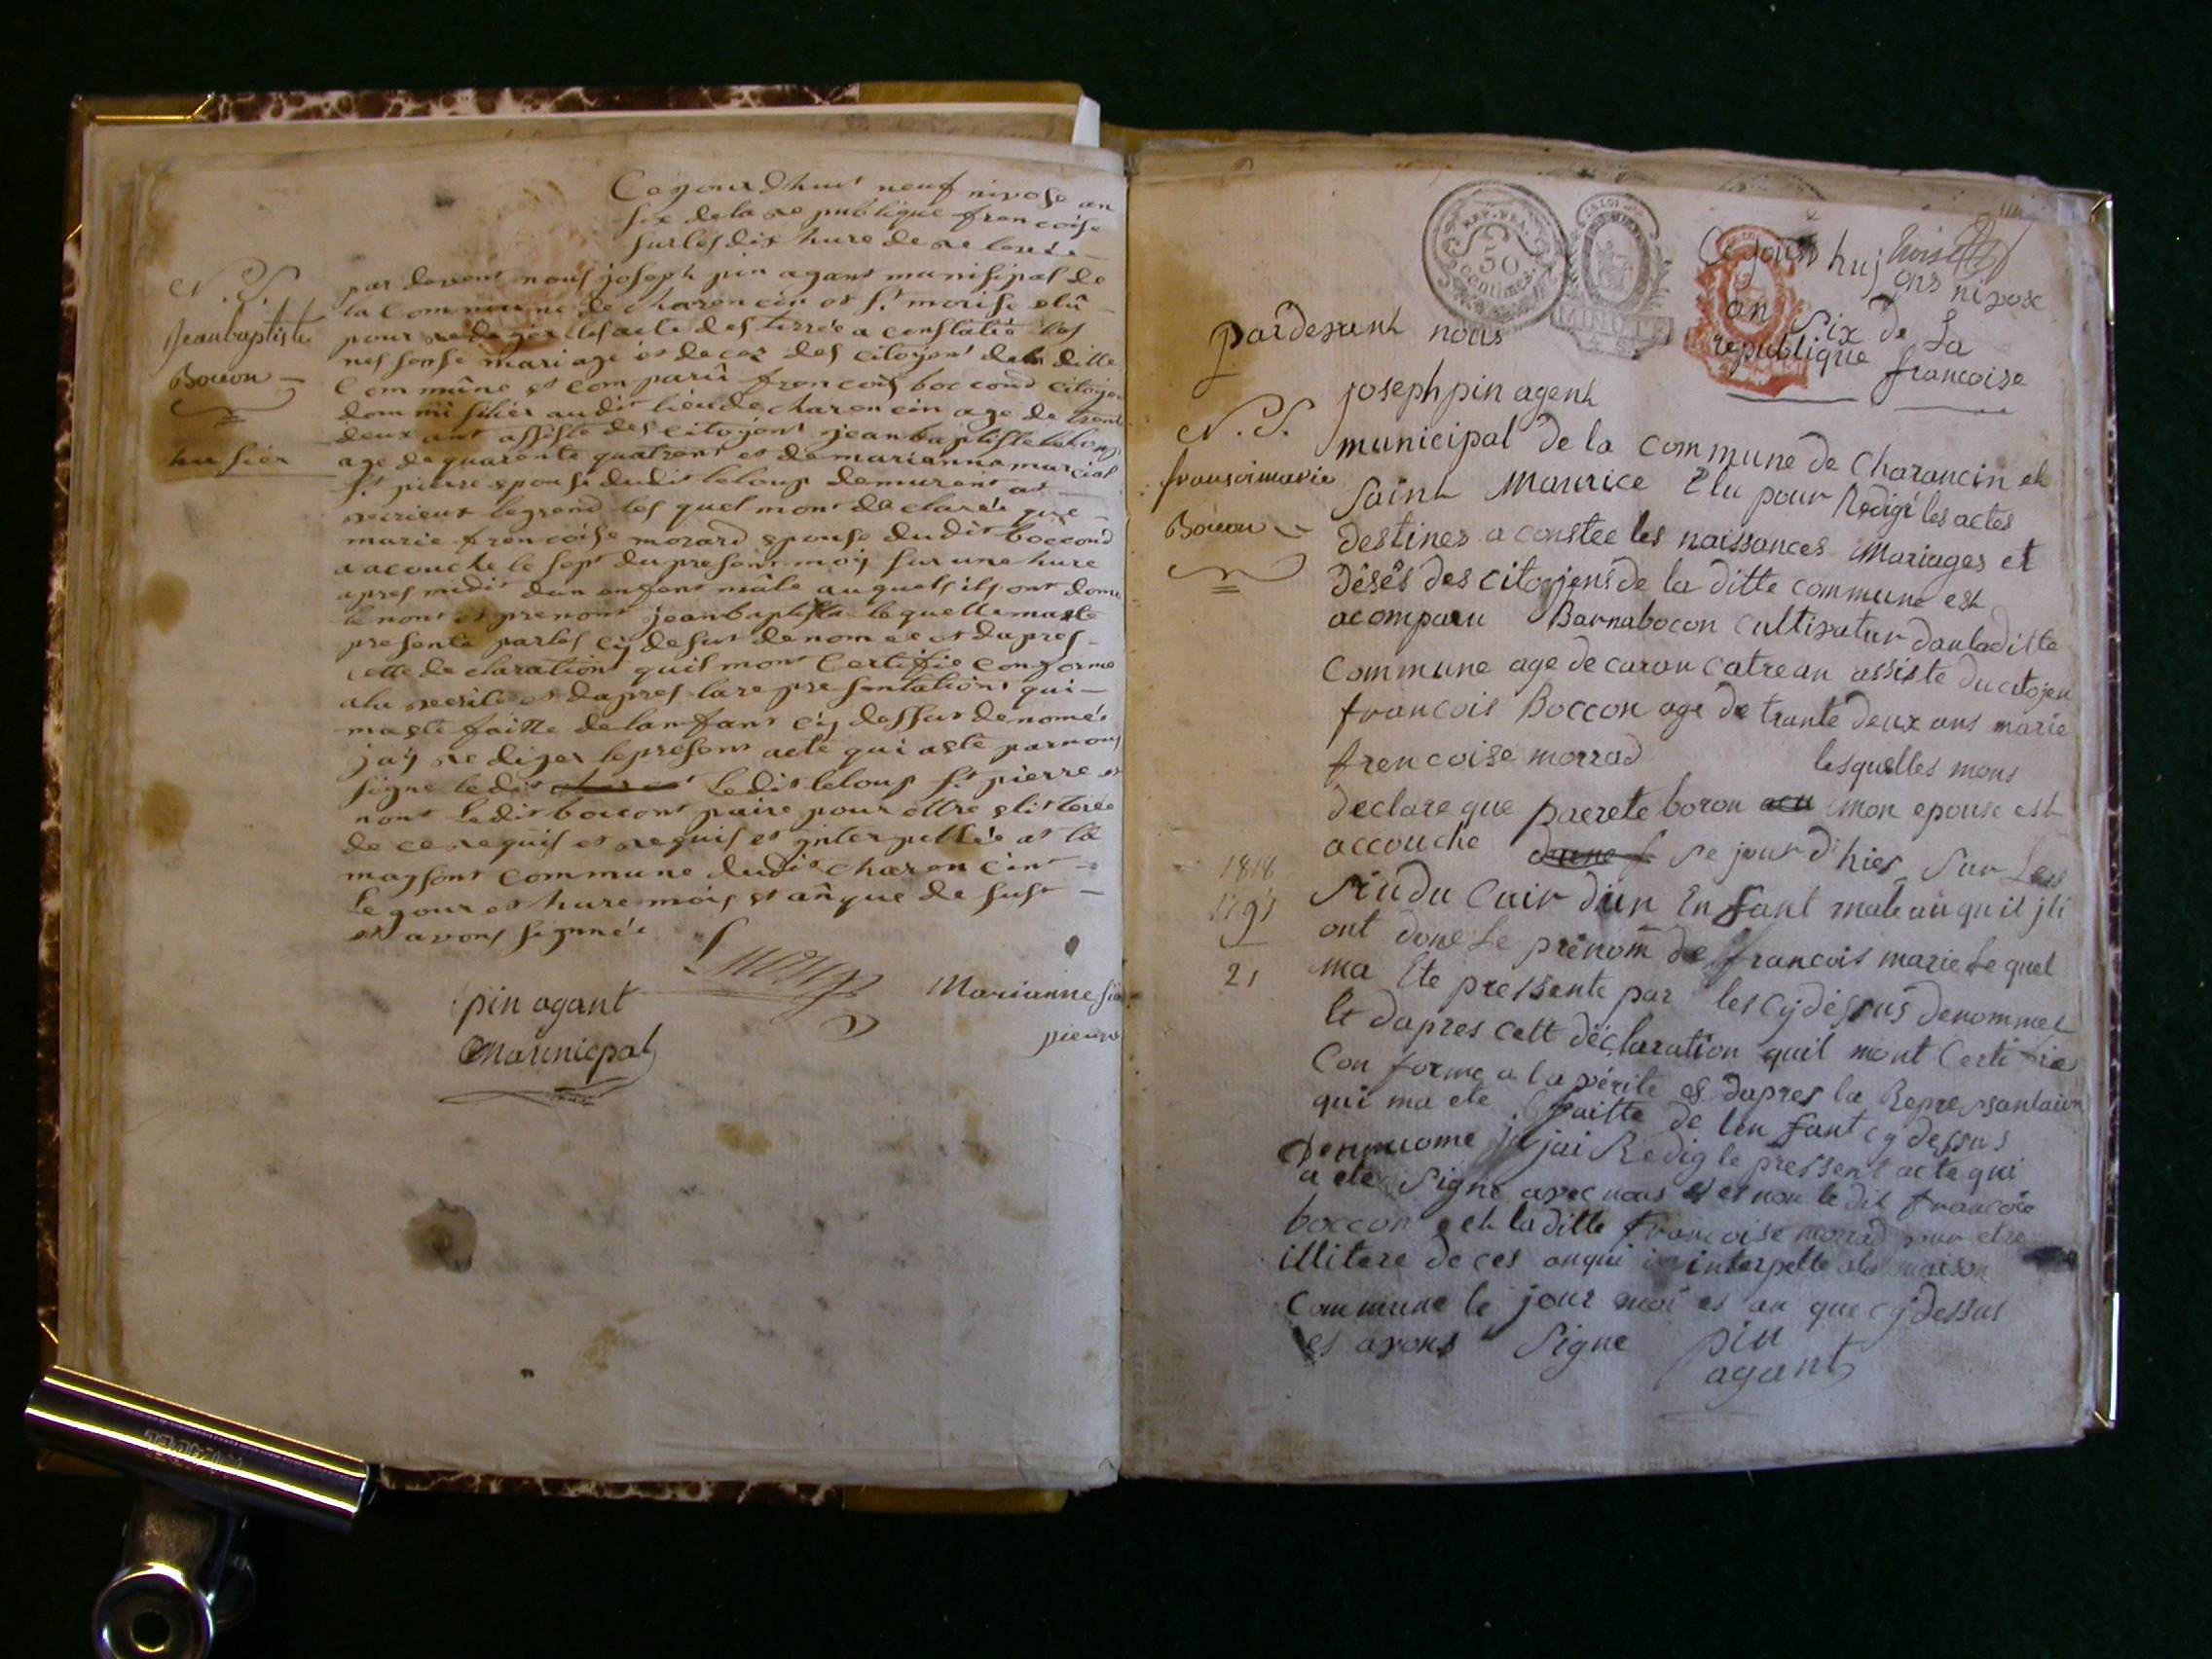 Cejourdhuit neuf nivose an
six de la republique francoise
sur les dix hure de
par devent nous joseph pin agant munisipal de
la Commune de charencin et st. morise elû
pour redeger les acte destinée a constater les
nessense mariage et decez des citoyent de la ditte
Commûne et comparû francois boccond citoyen
dommisilier audit lieu de charencin age de trente
deux ant assiste des citoyent jean baptiste leloup
age de quarente quatre ant et de marianne
st. pierre epouse dudit leloup demurent at
virieux legrand les quel mont declarée que
marie francoise morard epouse dudit boccond
a acouche le sept du present mois sur une hure
apres midit dun enfent mâle auquels ils ont donné
le nont et prenont jean baptiste le quelle ma ete
presente par les cij desut denomée et dapres
cette declaration quil mont Certifie conforme
a la verite et dapres la representationt qui
ma ete faitte de lanfant cij dessut denomée
jaÿ rediger le present acte qui a ete par nous
signe ledit ledit leloup st. pierre et
nont ledit boccont paire pour ettre elitterée
de ce requis et interpellée at la
maysont commune dudit charencint
Le jour et hure mois et anque de sust
et avons signnée
pin agant
Municipal
Marianne
pierre
N.S.
Jeanbaptiste
Boccon
huisier
REP. FRA.
50
centimes
MINUTE
Cejourdhuj
ons nivose
an Six de La
republique francoise
pardevant nous
joseph pin agent
municipal de la commune de Charancin et
Saint Maurice Elu pour Redigé les actes
destines a constee les naissances Mariages et
désés des citojens de la ditte commune est
acomparu Barnabocon cultivatur dauladitte
Commune age de caran catre an assiste du citojen
francois Boccon age de trante deux ans marie
francoise morrad lesquelles mons
declare que pacrete boron acu mon epouse est
accouche dune f se jour d'hier sur Les
du d'un Enfant male auquil jli
ont done Le prenom de francois marie Le quel
ma Ete pressente par les cy dessus denommet
Et dapres cett declaration quil mont Certifie
Conforme a la vérite es dapres la Repressantaion
qui ma ete faitte de lenfant cy dessus
jai Redig le pressent acte qui
a ete Signe avec nous et non le dit francoie
boccon et la ditte francoise morrad pour etre
illitere de ces interpelle ala maison
Commune le jour moi es an que cy dessus
es avons Signe pin
agant
N.S.
fransoimarie
Bocon
1818
1797
21